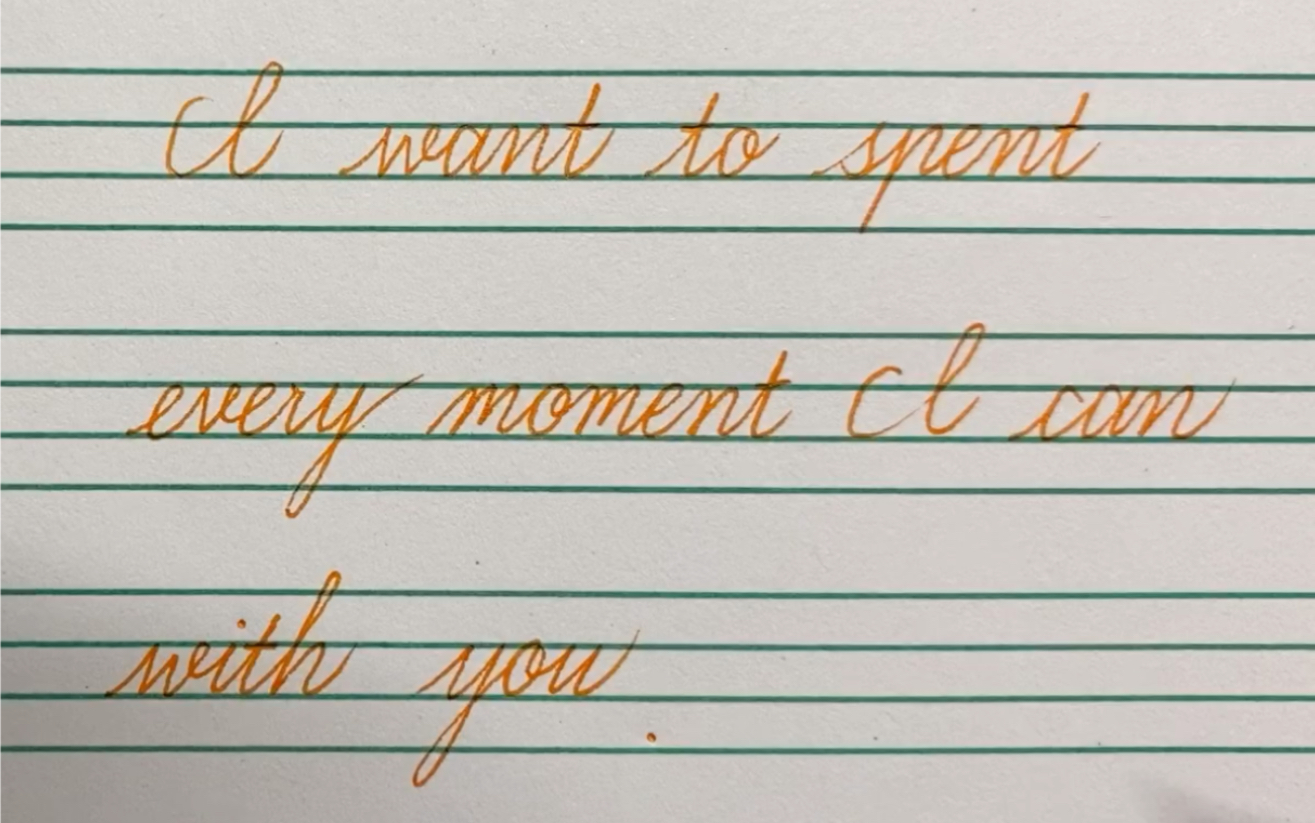 I want to spent
every moment I can
with you.